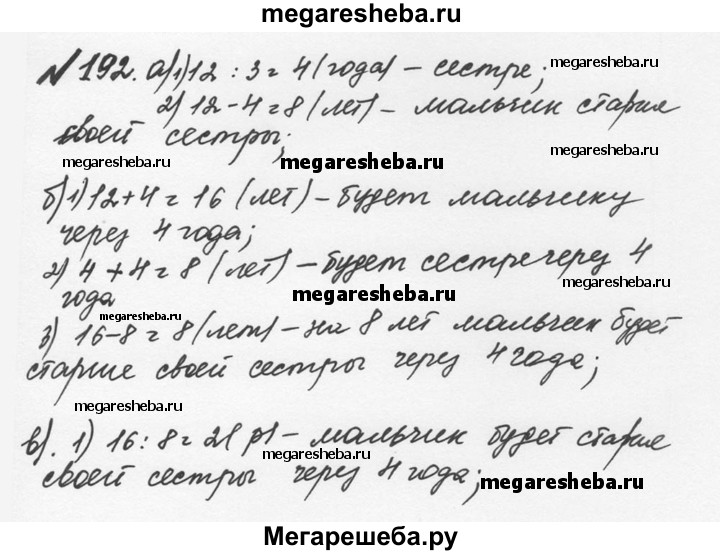 megaresheba.ru
№ 192. а) 1) 12 : 3 = 4 (года) – сестре; megaresheba.ru
2) 12 - 4 = 8 (лет) – мальчик старше
своей сестры;
megaresheba.ru megaresheba.ru megaresheba.ru
б) 1) 12 + 4 = 16 (лет) – будет мальчику
через 4 года;
2) 4 + 4 = 8 (лет) – будет сестре через 4
года megaresheba.ru megaresheba.ru
3) 16 - 8 = 8 (лет) – на 8 лет мальчик будет
старше своей сестры через 4 года;
megaresheba.ru megaresheba.ru
в). 1) 16 : 8 = 2 (р) – мальчик будет старше
megaresheba.ru
своей сестры через 4 года; megaresheba.ru
Мегарешеба.ру